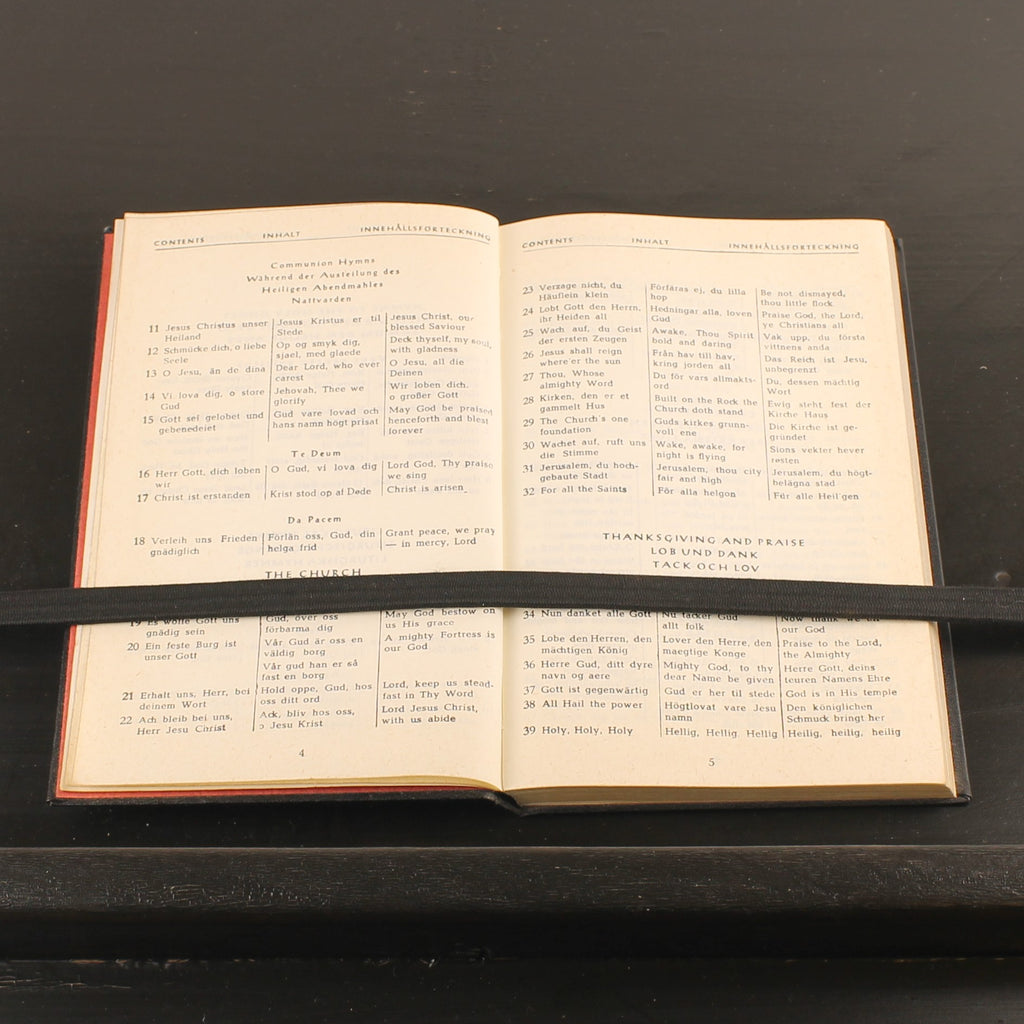 CONTENTS INHALT INNEHÅLLSFÖRTECKNING
Communion Hymns
Während der Austeilung des
Heiligen Abendmahles
Nattvarden
11 Jesus Christus unser Jesus Kristus er til Jesus Christ, our
Heiland Stede blessed Saviour
12 Schmücke dich, o liebe Op og smyk dig, Deck thyself, my soul,
Seele sjael, med glaede with gladness
13 O Jesu, än de dina Dear Lord, who ever O Jesu, all die
carest Deinen
14 Vi lova dig, o store Jehovah, Thee we Wir loben dich,
Gud glorify o großer Gott
15 Gott sei gelobet und Gud vare lovad och May God be praised
gebenedeiet hans namn högt prisat henceforth and blest
forever
Te Deum
16 Herr Gott, dich loben O Gud, vi lova dig Lord God, Thy praise
wir we sing
17 Christ ist erstanden Krist stod op af Døde Christ is arisen
Da Pacem
18 Verleih uns Frieden Förlän oss, Gud, din Grant peace, we pray
gnädiglich helga frid — in mercy, Lord
THE CHURCH
19 Es wolle Gott uns Gud, över oss May God bestow on
gnädig sein förbarma dig us His grace
20 Ein feste Burg ist Vår Gud är oss en A mighty Fortress is
unser Gott väldig borg our God
Vår gud han er så
fast en borg
21 Erhalt uns, Herr, bei Hold oppe, Gud, hos Lord, keep us stead-
deinem Wort oss ditt ord fast in Thy Word
22 Ach bleib bei uns, Ack, bliv hos oss, Lord Jesus Christ,
Herr Jesu Christ o Jesu Krist with us abide
4
CONTENTS INHALT INNEHÅLLSFÖRTECKNING
23 Verzage nicht, du Förfäras ej, du lilla Be not dismayed,
Häuflein klein hop thou little flock
24 Lobt Gott den Herrn, Hedningar alla, loven Praise God, the Lord,
ihr Heiden all Gud ye Christians all
25 Wach auf, du Geist Awake, Thou Spirit Vak upp, du första
der ersten Zeugen bold and daring vittnens anda
26 Jesus shall reign Från hav till hav, Das Reich ist Jesu,
where'er the sun kring jorden all unbegrenzt
27 Thou, Whose Du för vars allmakts- Du, dessen mächtig
almighty Word ord Wort
28 Kirken, den er et Built on the Rock the Ewig steht fest der
gammelt Hus Church doth stand Kirche Haus
29 The Church's one Guds kirkes grunn- Die Kirche ist ge-
foundation voll ene gründet
30 Wachet auf, ruft uns Wake, awake, for Sions vekter hever
die Stimme night is flying røsten
31 Jerusalem, du hoch- Jerusalem, thou city Jerusalem, du högt-
gebaute Stadt fair and high belägna stad
32 For all the Saints För alla helgon Für alle Heil'gen
THANKSGIVING AND PRAISE
LOB UND DANK
TACK OCH LOV
34 Nun danket alle Gott Nu tacker Gud Now thank we
allt folk our God
35 Lobe den Herren, den Lover den Herre, den Praise to the Lord,
mächtigen König maegtige Konge the Almighty
36 Herre Gud, ditt dyre Mighty God, to thy Herre Gott, deins
navn og aere dear Name be given teuren Namens Ehre
37 Gott ist gegenwärtig Gud er her til stede God is in His temple
38 All Hail the power Högtlovat vare Jesu Den königlichen
namn Schmuck bringt her
39 Holy, Holy, Holy Hellig, Hellig, Hellig Heilig, heilig, heilig
5